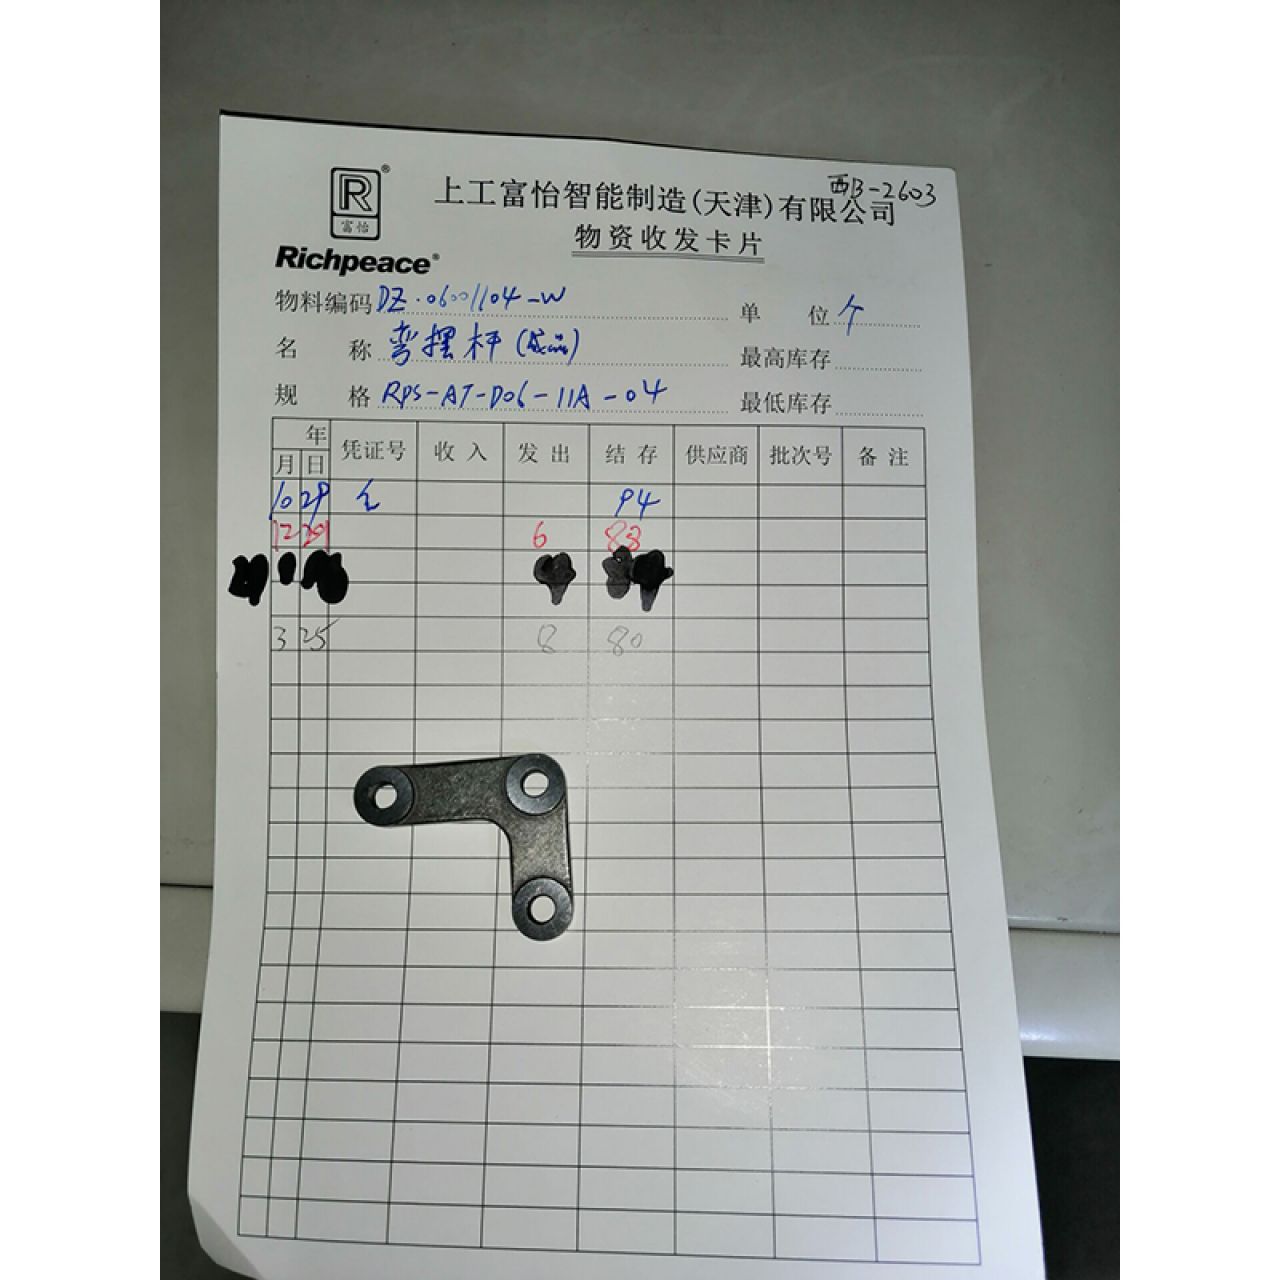 西B-2603
R®
富怡
Richpeace®
上工富怡智能制造(天津)有限公司
物资收发卡片
物料编码 DZ.06001104-W 单位 个
名称 弯摆杆(成品) 最高库存
规格 RPS-AT-D06-11A-04 最低库存
年 凭证号 收入 发出 结存 供应商 批次号 备注
月 日
10 29 94
12 6 88
3 25 8 80